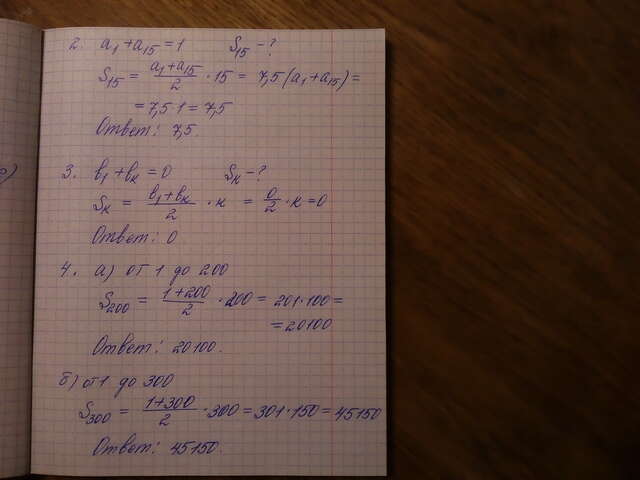 2. a₁ + a₁₅ = 1 S₁₅ - ?
S₁₅ = (a₁ + a₁₅)/2 · 15 = 7,5 (a₁ + a₁₅) =
= 7,5 · 1 = 7,5
Ответ: 7,5.
3. в₁ + вₖ = 0 Sₖ - ?
Sₖ = (в₁ + вₖ)/2 · к = 0/2 · к = 0
Ответ: 0
4. а) от 1 до 200
S₂₀₀ = (1 + 200)/2 · 200 = 201 · 100 =
= 20100
Ответ: 20100.
б) от 1 до 300
S₃₀₀ = (1 + 300)/2 · 300 = 301 · 150 = 45150
Ответ: 45150.